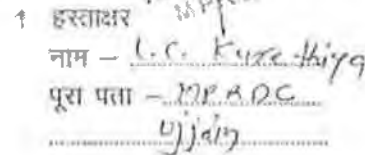 1 हस्ताक्षर
नाम – L.C. Kurethiya
पूरा पता – MPRDC
Ujjain